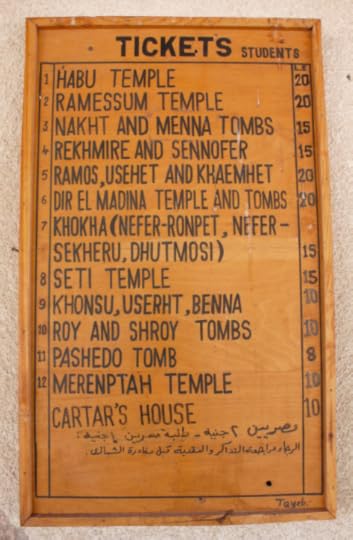 TICKETS STUDENTS
L.E
1 HABU TEMPLE 20
2 RAMESSUM TEMPLE 20
3 NAKHT AND MENNA TOMBS 15
4 REKHMIRE AND SENNOFER 15
5 RAMOS,USEHET AND KHAEMHET 20
6 DIR EL MADINA TEMPLE AND TOMBS 20
7 KHOKHA(NEFER-RONPET, NEFER-
SEKHERU, DHUTMOSI) 15
8 SETI TEMPLE 15
9 KHONSU,USERHT,BENNA 10
10 ROY AND SHROY TOMBS 10
11 PASHEDO TOMB 8
12 MERENPTAH TEMPLE 10
CARTAR'S HOUSE 10
مصريين ٢ جنية - طلبة مصريين ١ جنية
الرجاء مراجعة التذاكر والنقدية قبل مغادرة الشباك
Tayeb